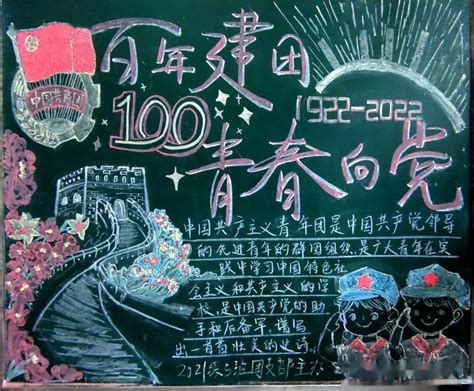 百年建团
中国共青团
100
1922-2022
青春向党
中国共产主义青年团是中国共产党领导
的先进青年的群团组织,是广大青年在实
践中学习中国特色社
会主义和共产主义的学
校,是中国共产党的助
手和后备军,谱写
出一首首壮美的史诗。
班团支部主办